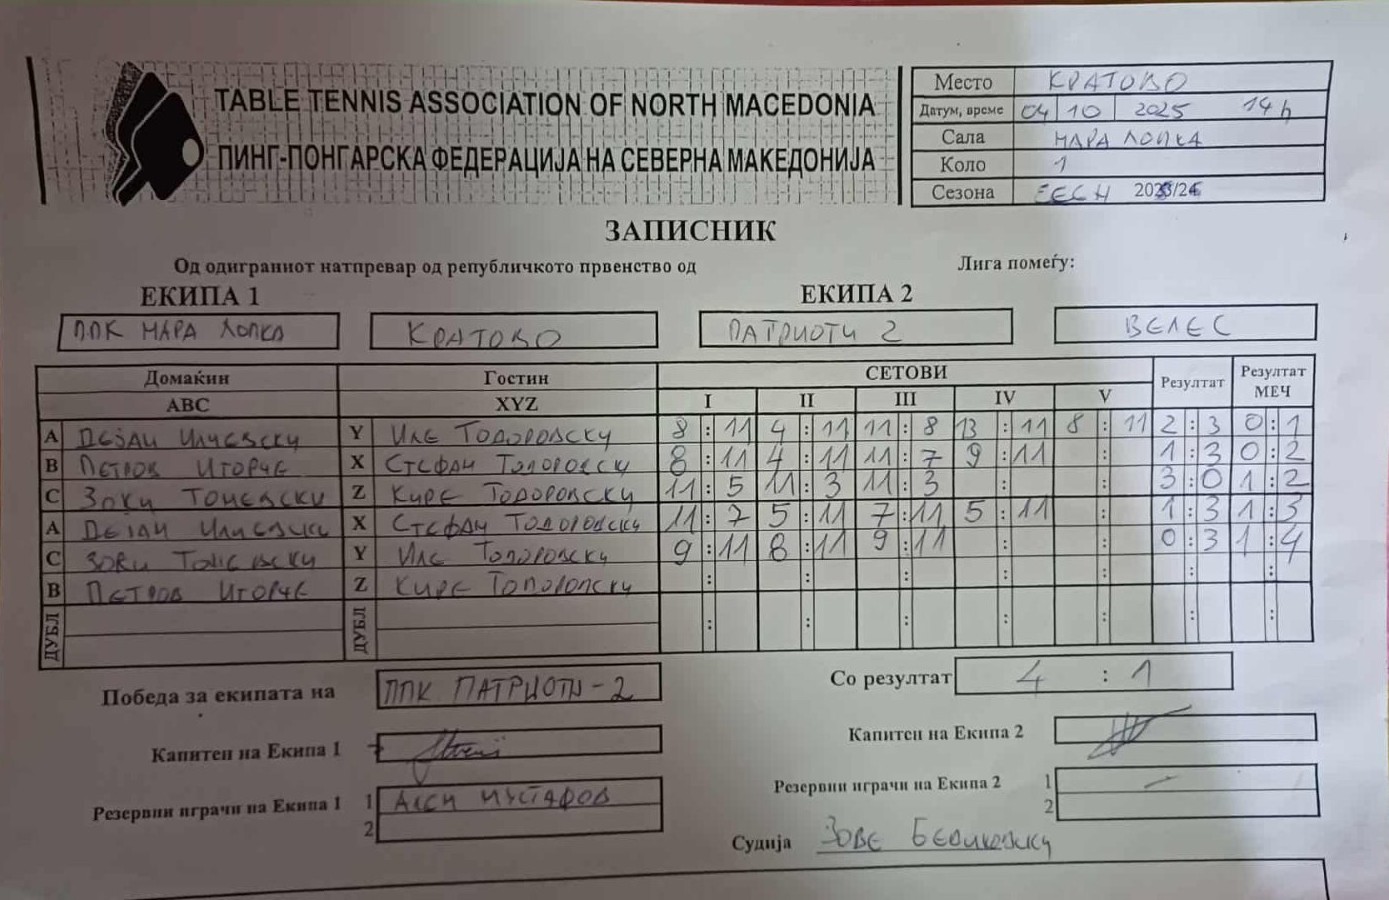 TABLE TENNIS ASSOCIATION OF NORTH MACEDONIA
ПИНГ-ПОНГАРСКА ФЕДЕРАЦИЈА НА СЕВЕРНА МАКЕДОНИЈА
Место КРАТОВО
Датум, време 04 10 2025 14 h
Сала МАРА ЛОПКА
Коло 1
Сезона ЕСЕН 2025/26
ЗАПИСНИК
Од одиграниот натпревар од републичкото првенство од Лига помеѓу:
ЕКИПА 1 ЕКИПА 2
ППК МАРА ЛОПКА КРАТОВО ПАТРИОТИ 2 ВЕЛЕС
Домаќин Гостин СЕТОВИ Резултат Резултат МЕЧ
ABC XYZ I II III IV V
A ДЕЈАН ИЛИЕВСКИ Y ИЛЕ ТОДОРОВСКИ 8 : 11 4 : 11 11 : 8 13 : 11 8 : 11 2 : 3 0 : 1
B ПЕТРОВ ИГОРЧЕ X СТЕФАН ТОДОРОВСКИ 8 : 11 4 : 11 11 : 7 9 : 11 : 1 : 3 0 : 2
C ЗОКИ ТОНЕВСКИ Z КИРЕ ТОДОРОВСКИ 11 : 5 11 : 3 11 : 3 : : 3 : 0 1 : 2
A ДЕЈАН ИЛИЕВСКИ X СТЕФАН ТОДОРОВСКИ 11 : 7 5 : 11 7 : 11 5 : 11 : 1 : 3 1 : 3
C ЗОКИ ТОНЕВСКИ Y ИЛЕ ТОДОРОВСКИ 9 : 11 8 : 11 9 : 11 : : 0 : 3 1 : 4
B ПЕТРОВ ИГОРЧЕ Z КИРЕ ТОДОРОВСКИ : : : : : : :
ДУБЛ ДУБЛ : : : : : : :
Победа за екипата на ППК ПАТРИОТИ-2 Со резултат 4 : 1
Капитен на Екипа 1 Капитен на Екипа 2
Резервни играчи на Екипа 1 1 АЛСИ МУСТАФОВ Резервни играчи на Екипа 2 1 -
2 2
Судија